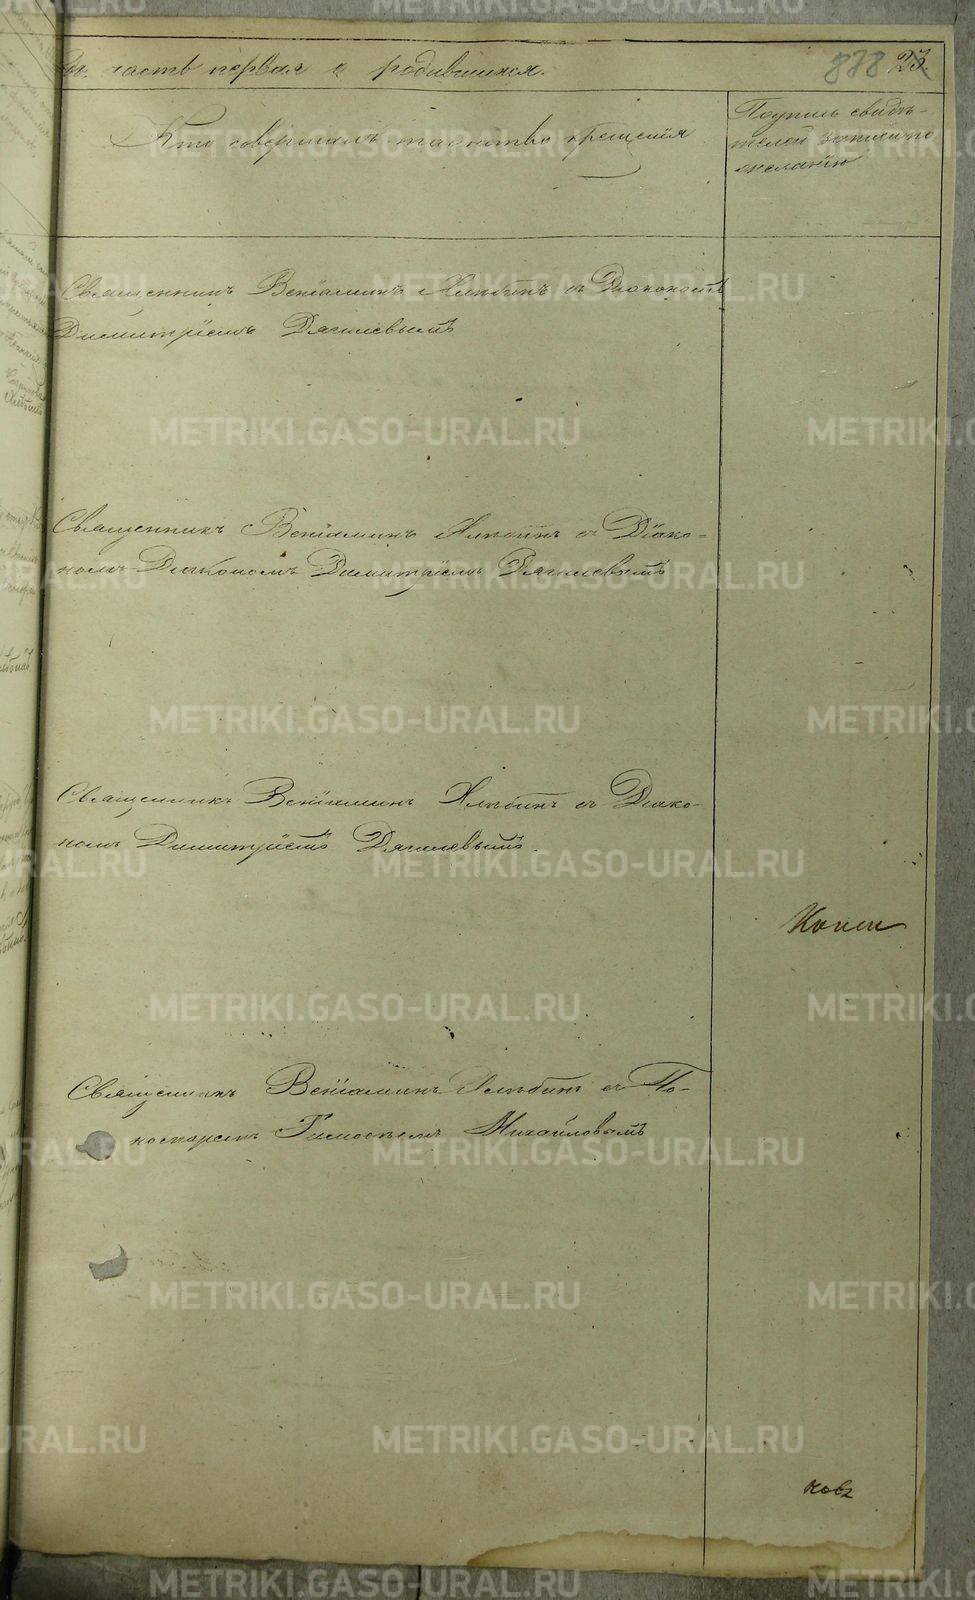 часть первая о родившихся.
878 23
Кто совершалъ таинство крещенія
Подпись свидѣ-
телей записи по
желанію
Священникъ Веніаминъ съ Діакономъ
Димитріемъ Дягилевымъ
Священникъ Веніаминъ съ Діако-
номъ Діакономъ Димитріемъ Дягилевымъ
Священникъ Веніаминъ съ Діако-
номъ Димитріемъ Дягилевымъ.
Священникъ Веніаминъ съ По-
номаремъ Михайловымъ
METRIKI.GASO-URAL.RU